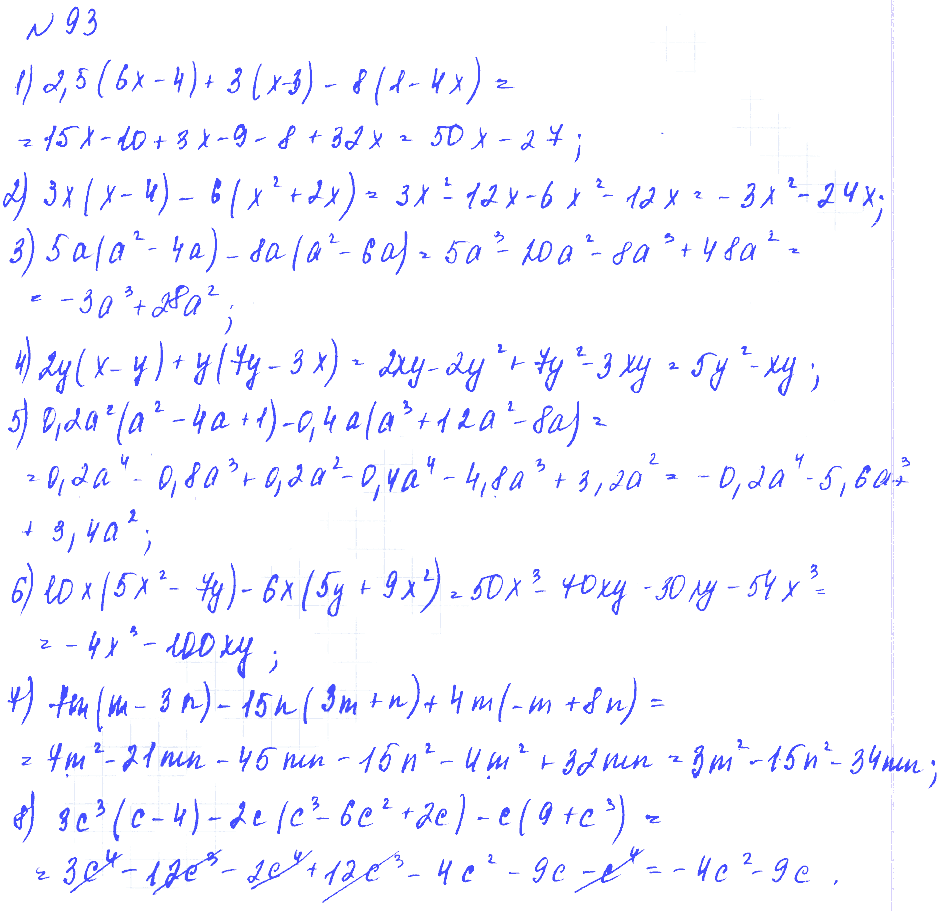 № 93
1) 2,5(6x-4)+3(x-3)-8(1-4x)=
=15x-10+3x-9-8+32x=50x-27;
2) 3x(x-4)-6(x²+2x)=3x²-12x-6x²-12x=-3x²-24x;
3) 5a(a²-4a)-8a(a²-6a)=5a³-20a²-8a³+48a²=
=-3a³+28a²;
4) 2y(x-y)+y(7y-3x)=2xy-2y²+7y²-3xy=5y²-xy;
5) 0,2a²(a²-4a+1)-0,4a(a³+12a²-8a)=
=0,2a⁴-0,8a³+0,2a²-0,4a⁴-4,8a³+3,2a²=-0,2a⁴-5,6a³+
+3,4a²;
6) 10x(5x²-7y)-6x(5y+9x²)=50x³-70xy-30xy-54x³=
=-4x³-100xy;
7) 7m(m-3n)-15n(3m+n)+4m(-m+8n)=
=7m²-21mn-45mn-15n²-4m²+32mn=3m²-15n²-34mn;
8) 3c³(c-4)-2c(c³-6c²+2c)-c(9+c³)=
=3c⁴-12c³-2c⁴+12c³-4c²-9c-c⁴=-4c²-9c.